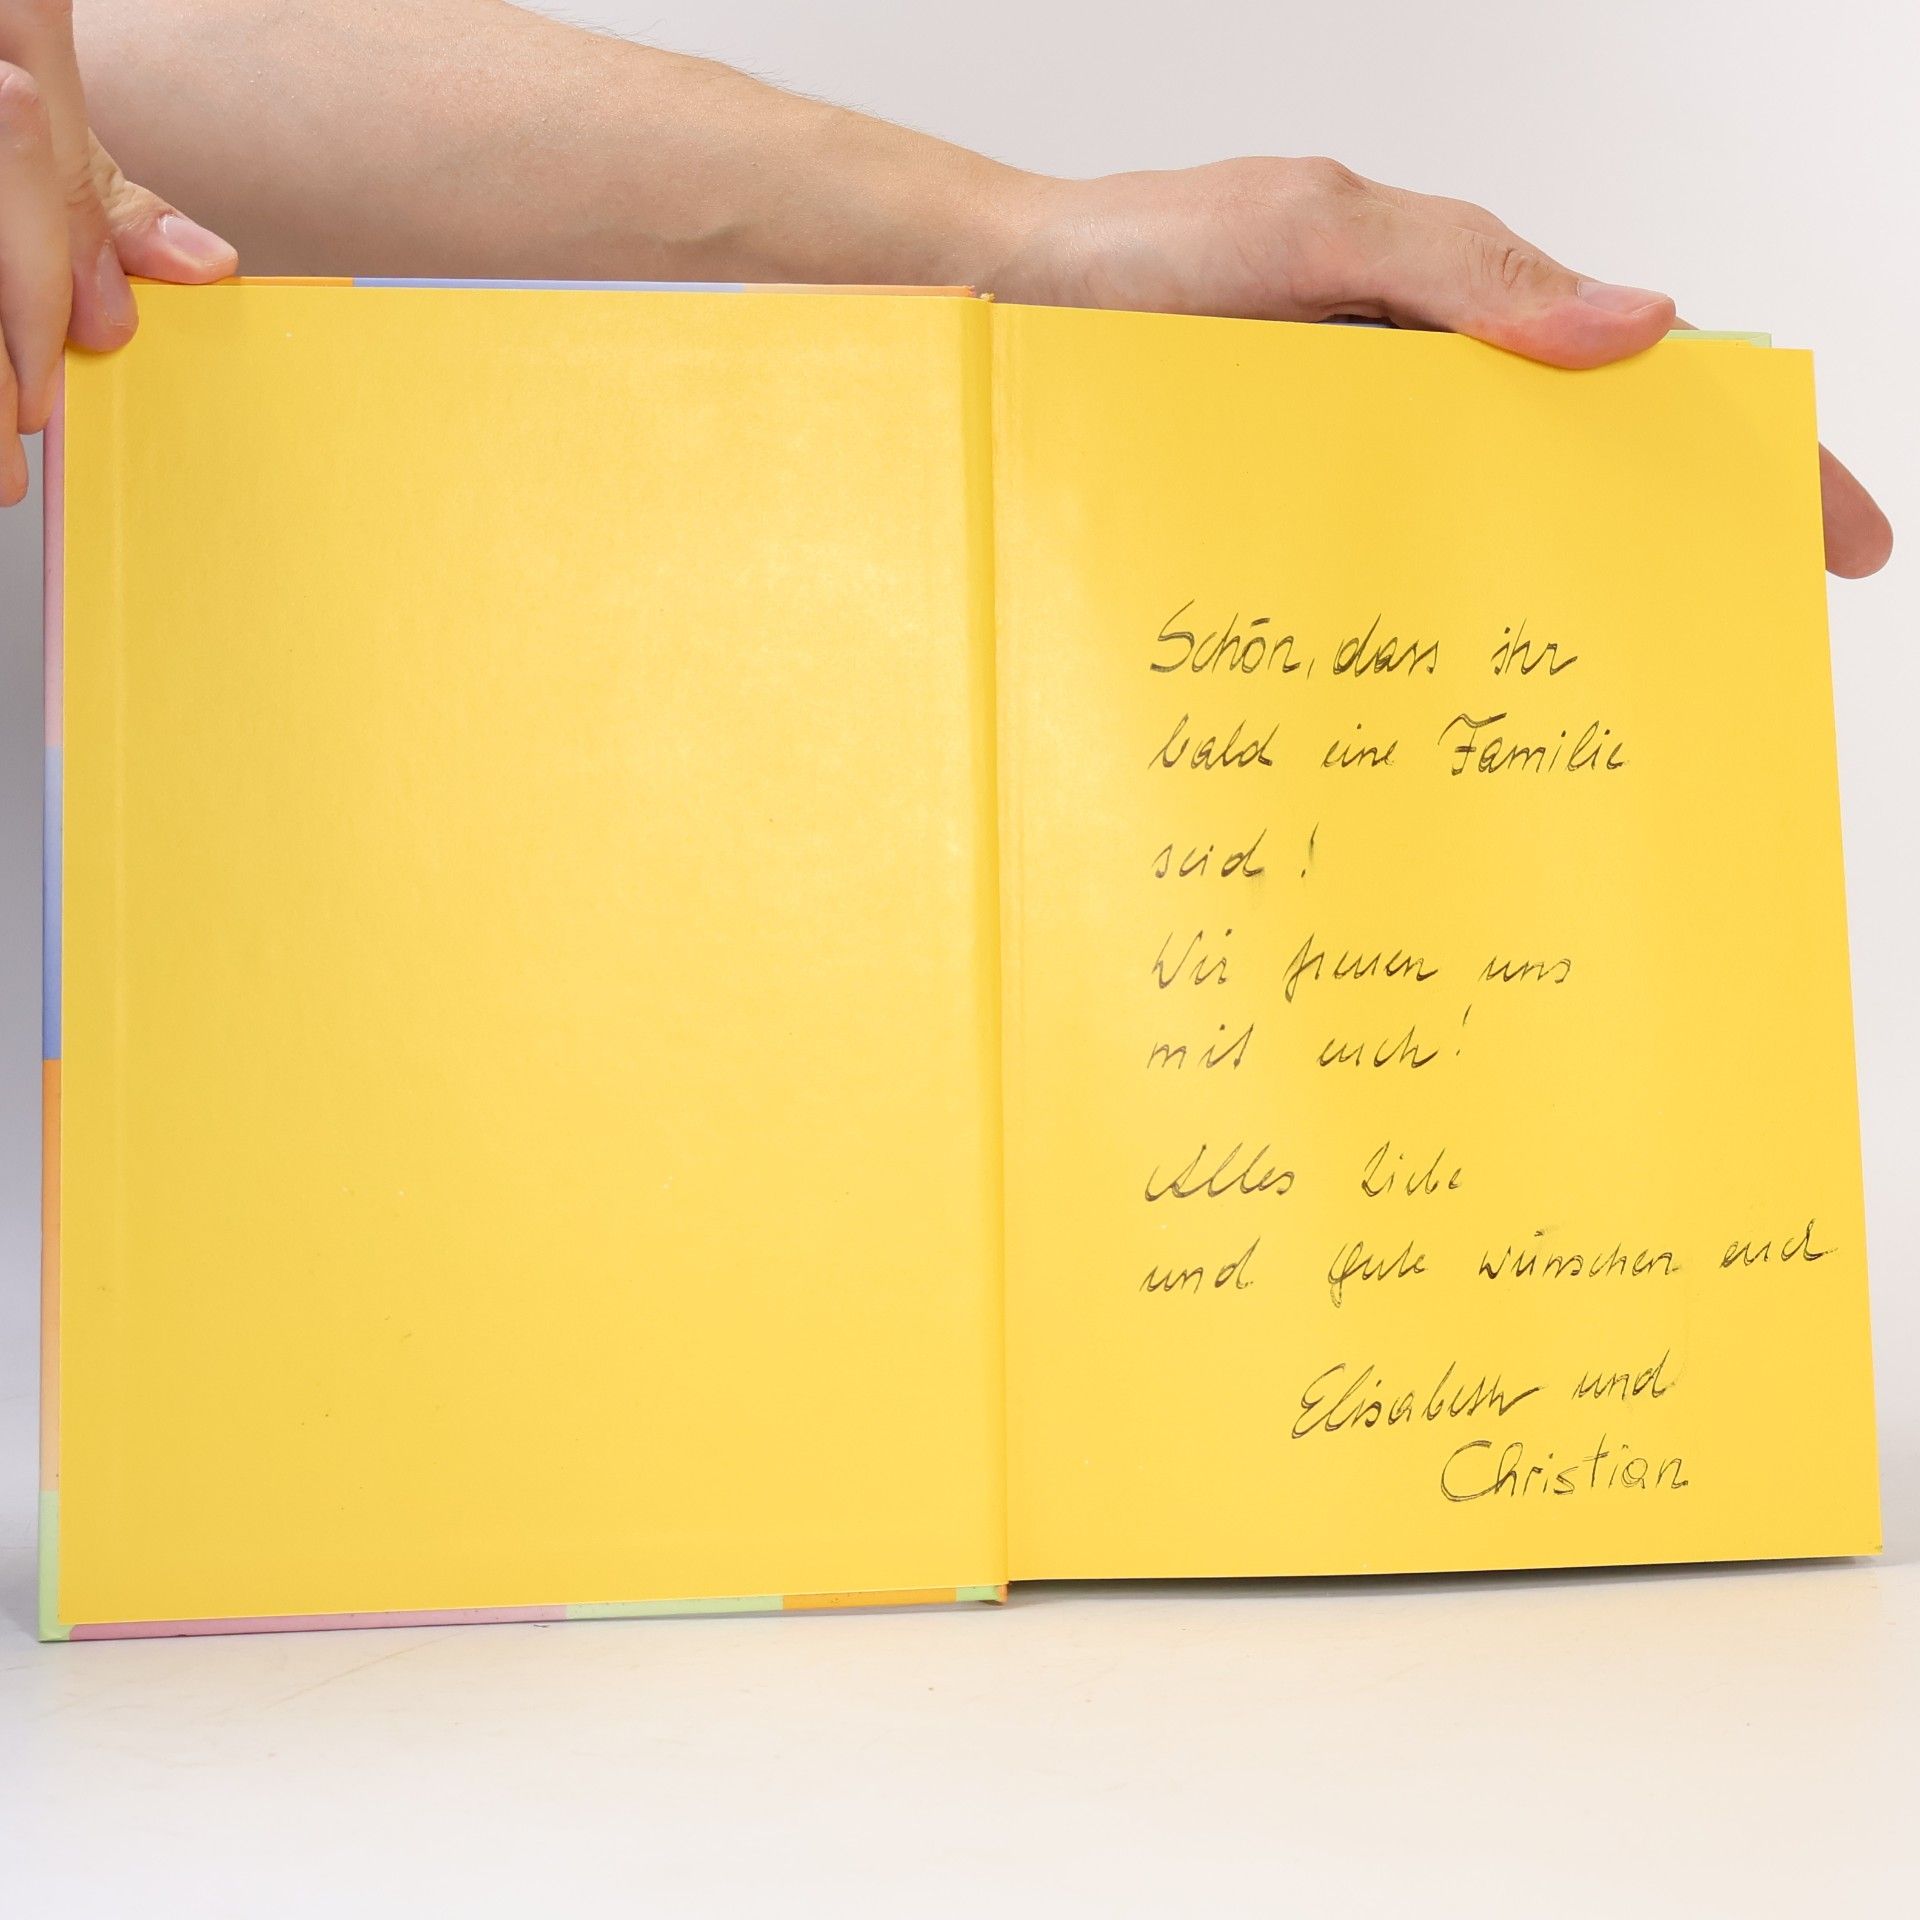 Schön, dass ihr
bald eine Familie
seid!
Wir freuen uns
mit euch!
Alles Liebe
und Gute wünschen euch
Elisabeth und
Christian